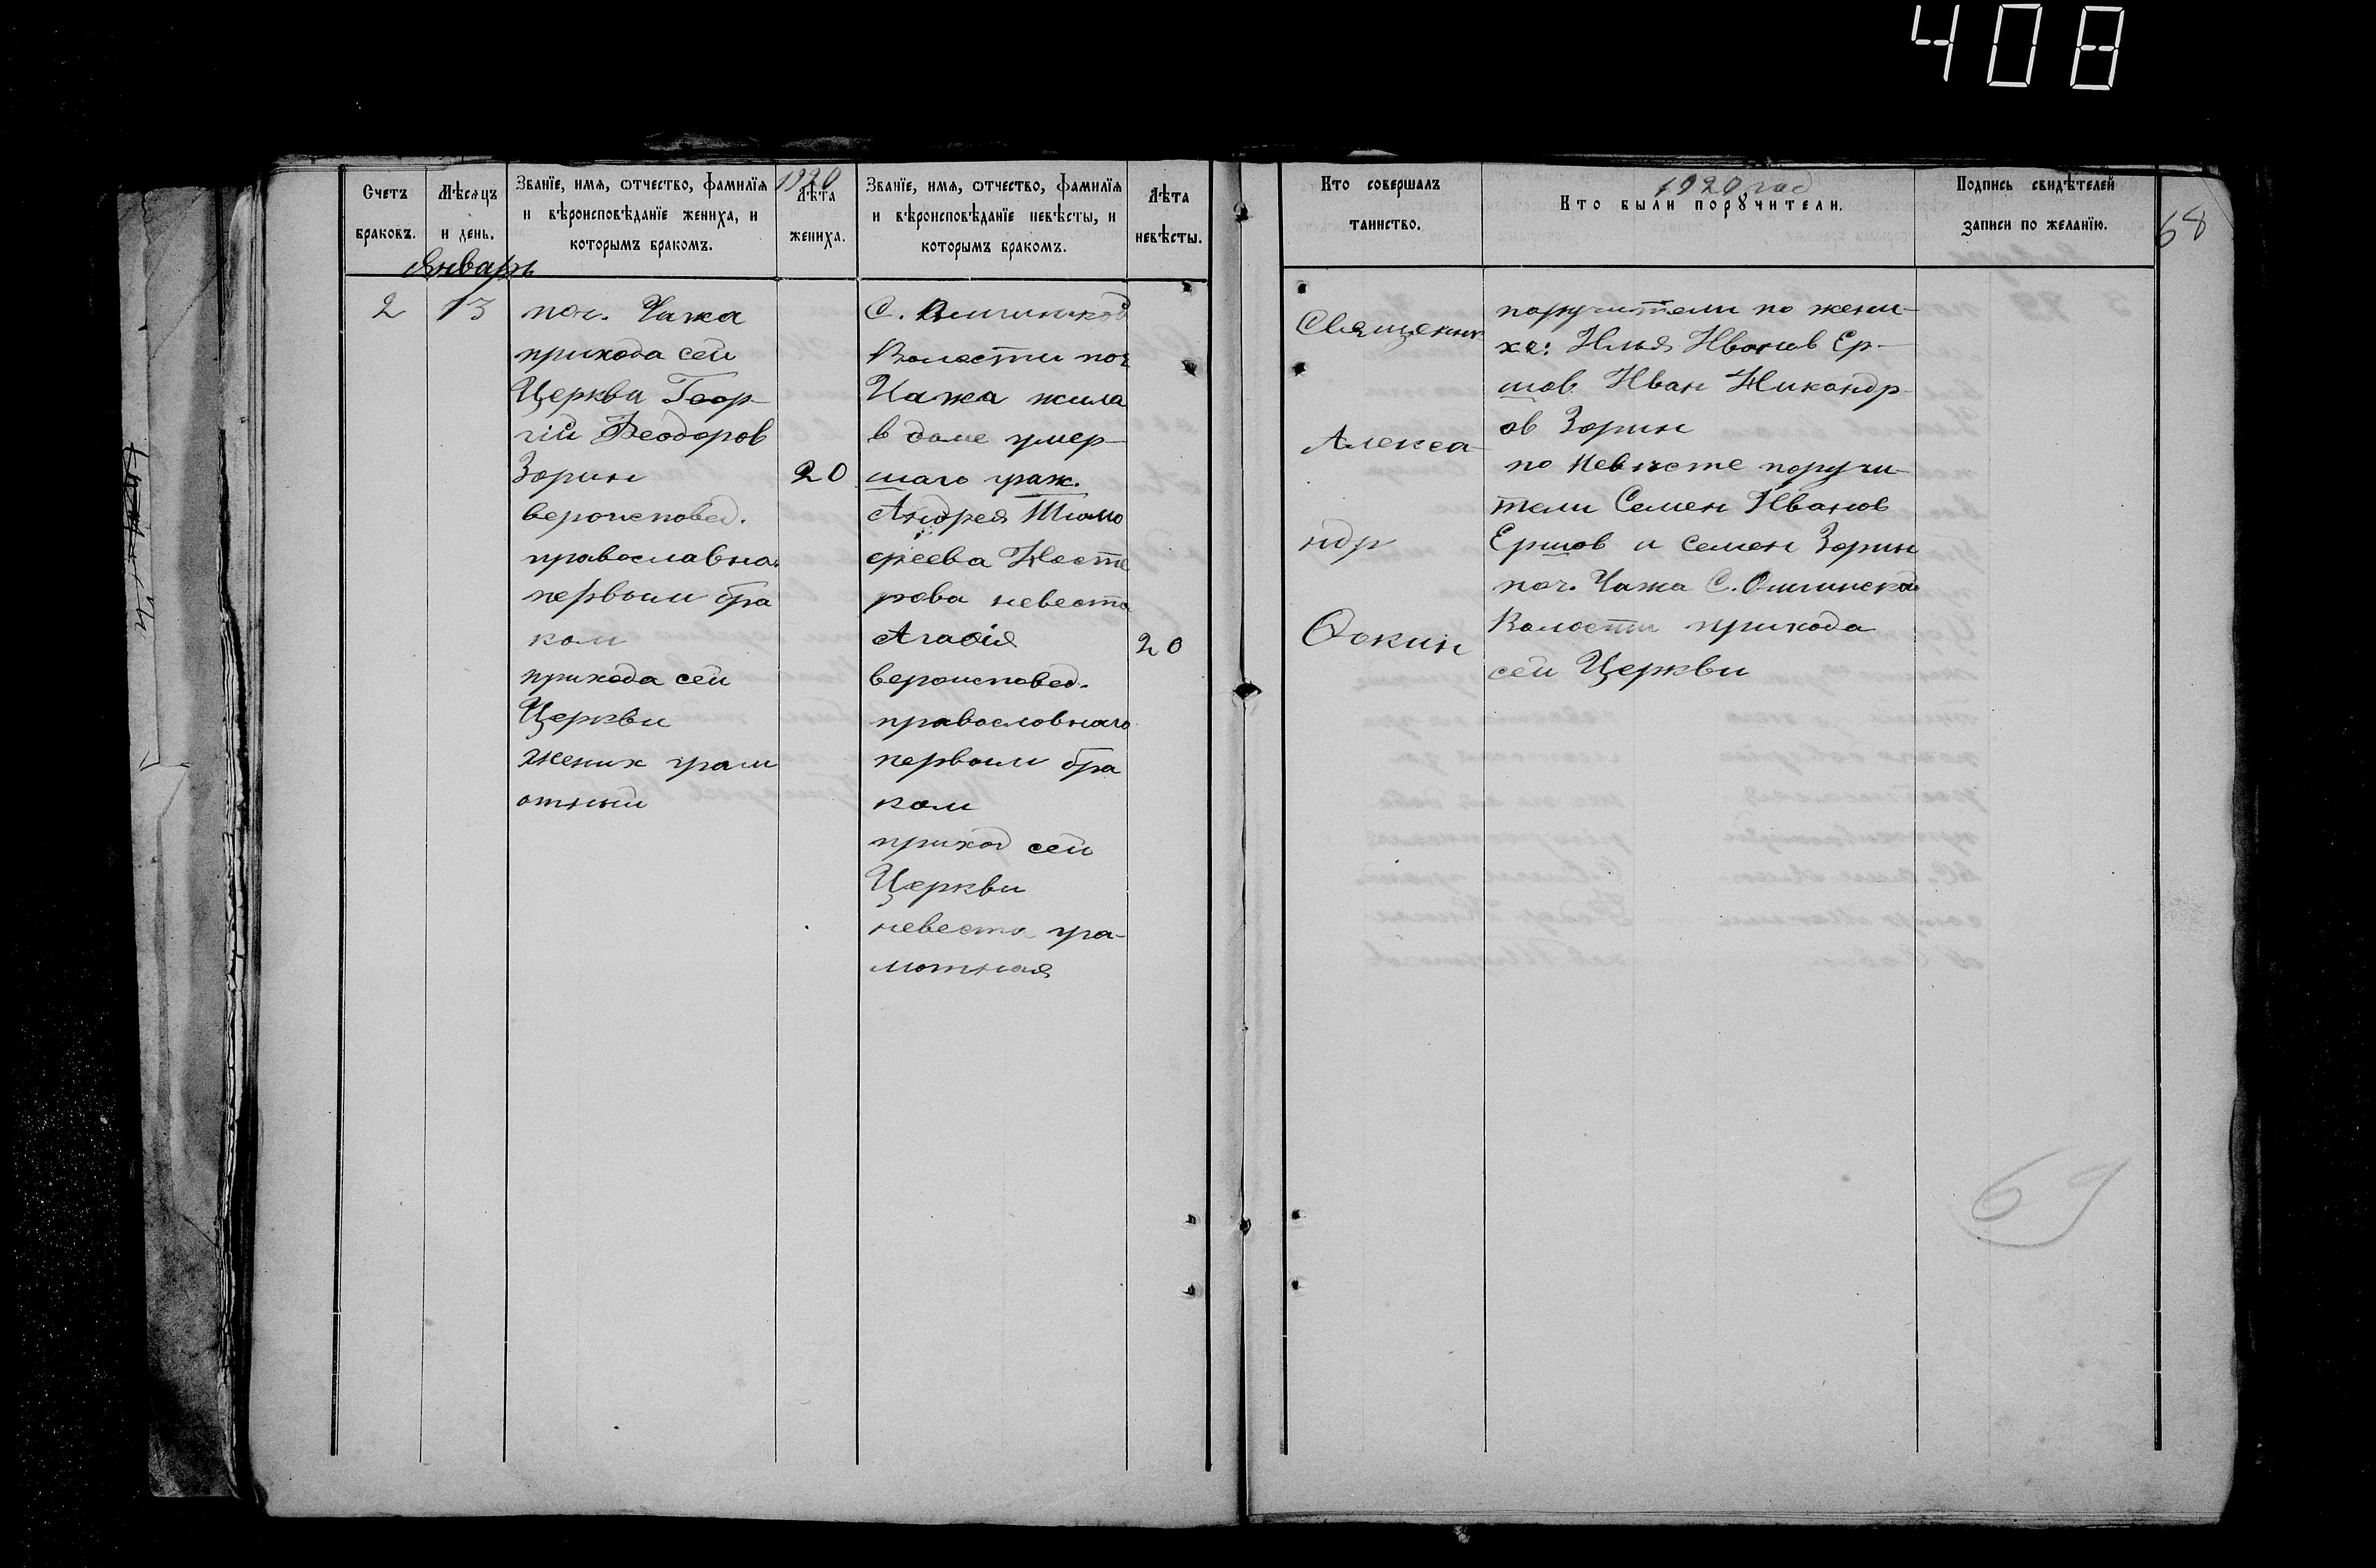 408
1920
Счетъ
браковъ.
Мѣсяцъ
и день.
Званїе, имя, ѿтчество, фамилїя
и вѣроисповѣданїе жениха, и
которымъ бракомъ.
Лѣта
жениха.
Званїе, имя, ѿтчество, фамилїя
и вѣроисповѣданїе невѣсты, и
которымъ бракомъ.
Лѣта
невѣсты.
Январь
2
13
поч. Чажа
прихода сей
Церкви Геор-
гій Феодоров
Зорин
вероисповед.
православна.
первым бра
ком
прихода сей
Церкви
жених грам
отный
20
С.
Волости поч
Чажа жила
в доме умер-
шаго граж.
Андрея Тимо
феева Несте
рова невеста
Агафія
вероисповед.
православнаго
первым бра
ком
приход сей
Церкви
невеста гра-
мотная
20
Кто совершалъ
таинство.
1920 год
Кто были порꙋчители.
Подпись свидѣтелей
записи по желанїю.
68
Священник
Алекса-
ндр
Фокин
поручители по жени-
хе: Илья Иванов Ер-
шов Иван Никандр-
ов Зорин
по невесте поручи-
тели Семен Иванов
Ершов и Семен Зорин
поч. Чажа С. Ошинской
Волости прихода
сей Церкви
69